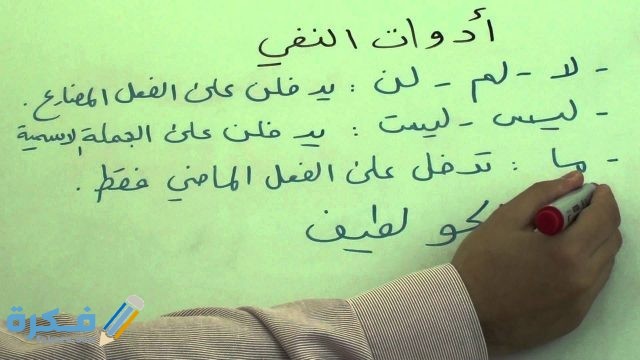 أدوات النفي
- لا - لم - لن : يدخلن على الفعل المضارع .
- ليس - ليست : يدخلن على الجملة الاسمية
- ما : تدخل على الفعل الماضي فقط .
لطيف
فكرة